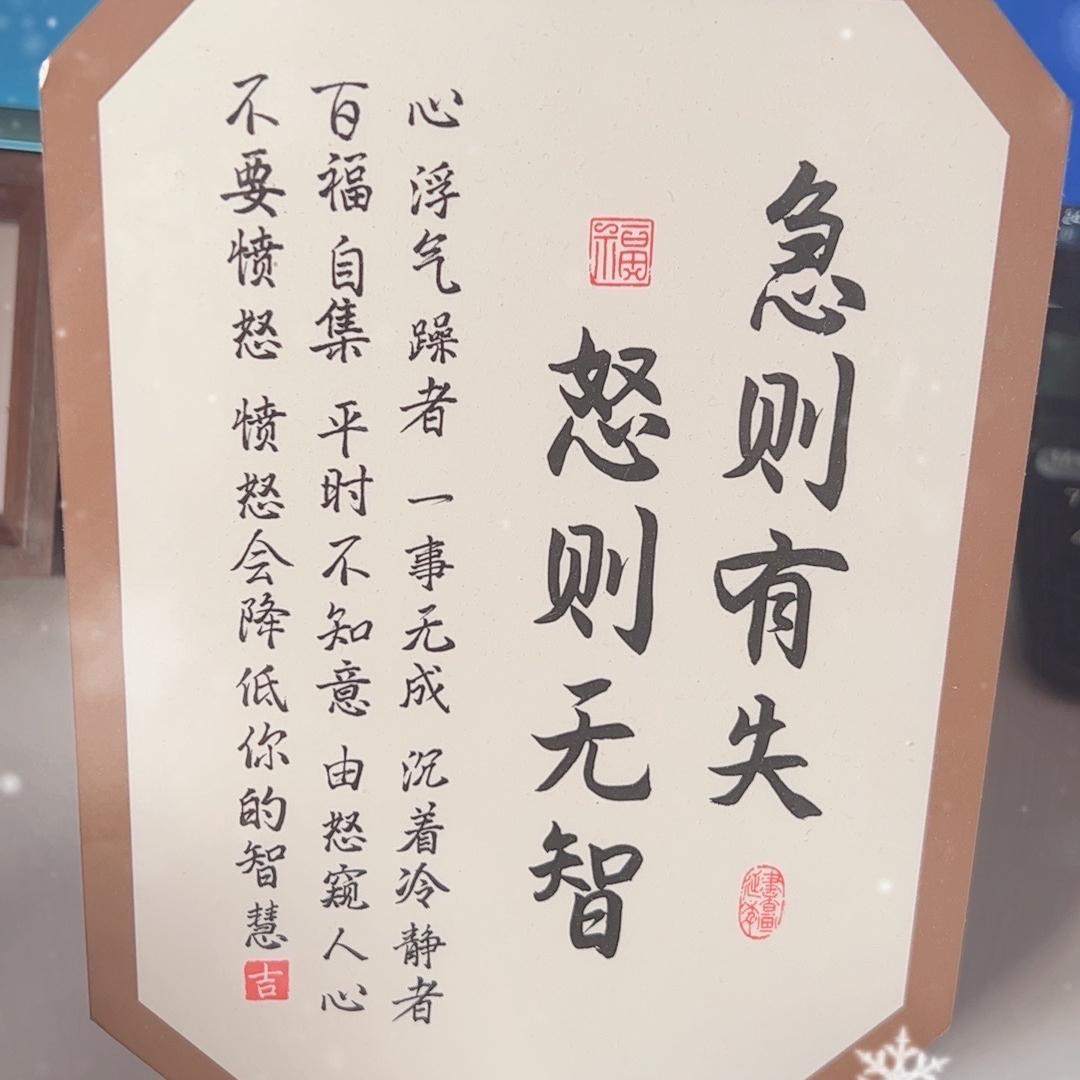 急则有失
怒则无智
心浮气躁者 一事无成 沉着冷静者
百福自集 平时不知意 由怒窥人心
不要愤怒 愤怒会降低你的智慧
福
书画延年
吉